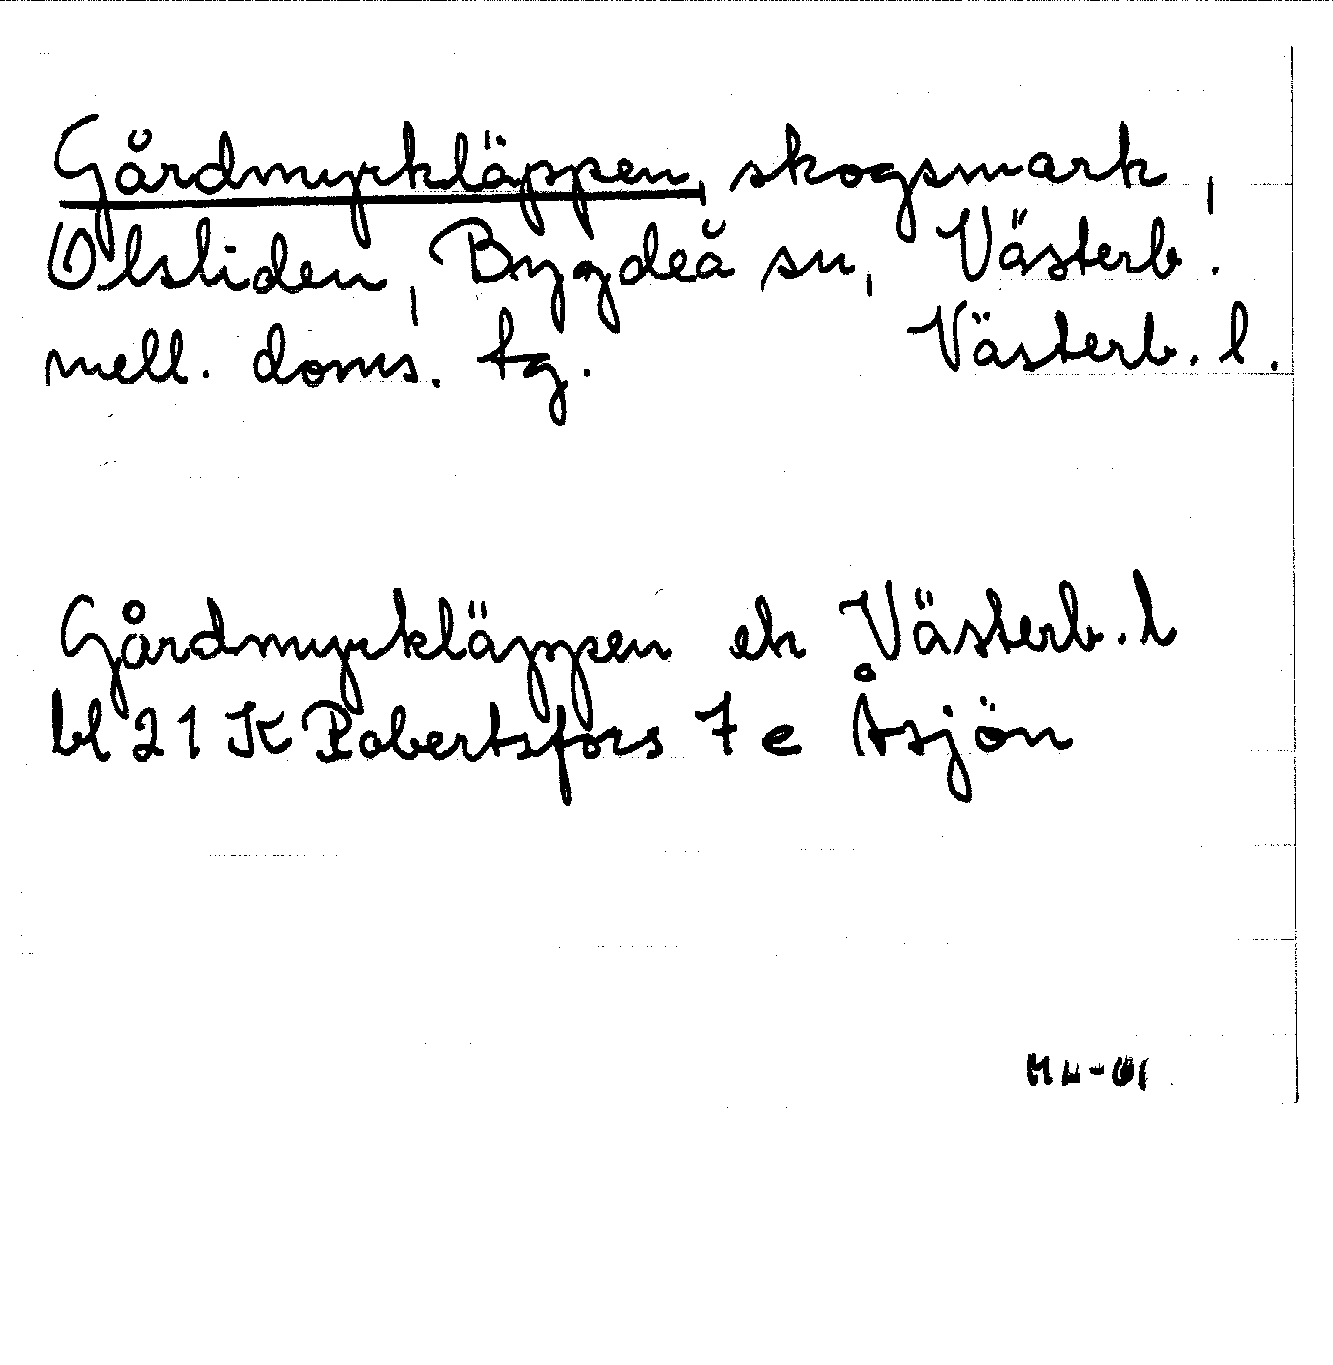 Gårdmyrkläppen, skogsmark,
Olsliden, Bygdeå sn, Västerb.
mell. doms. tg. Västerb. l.
Gårdmyrkläppen ek Västerb. l
bl 21 K Robertsfors 7 e Åsjön